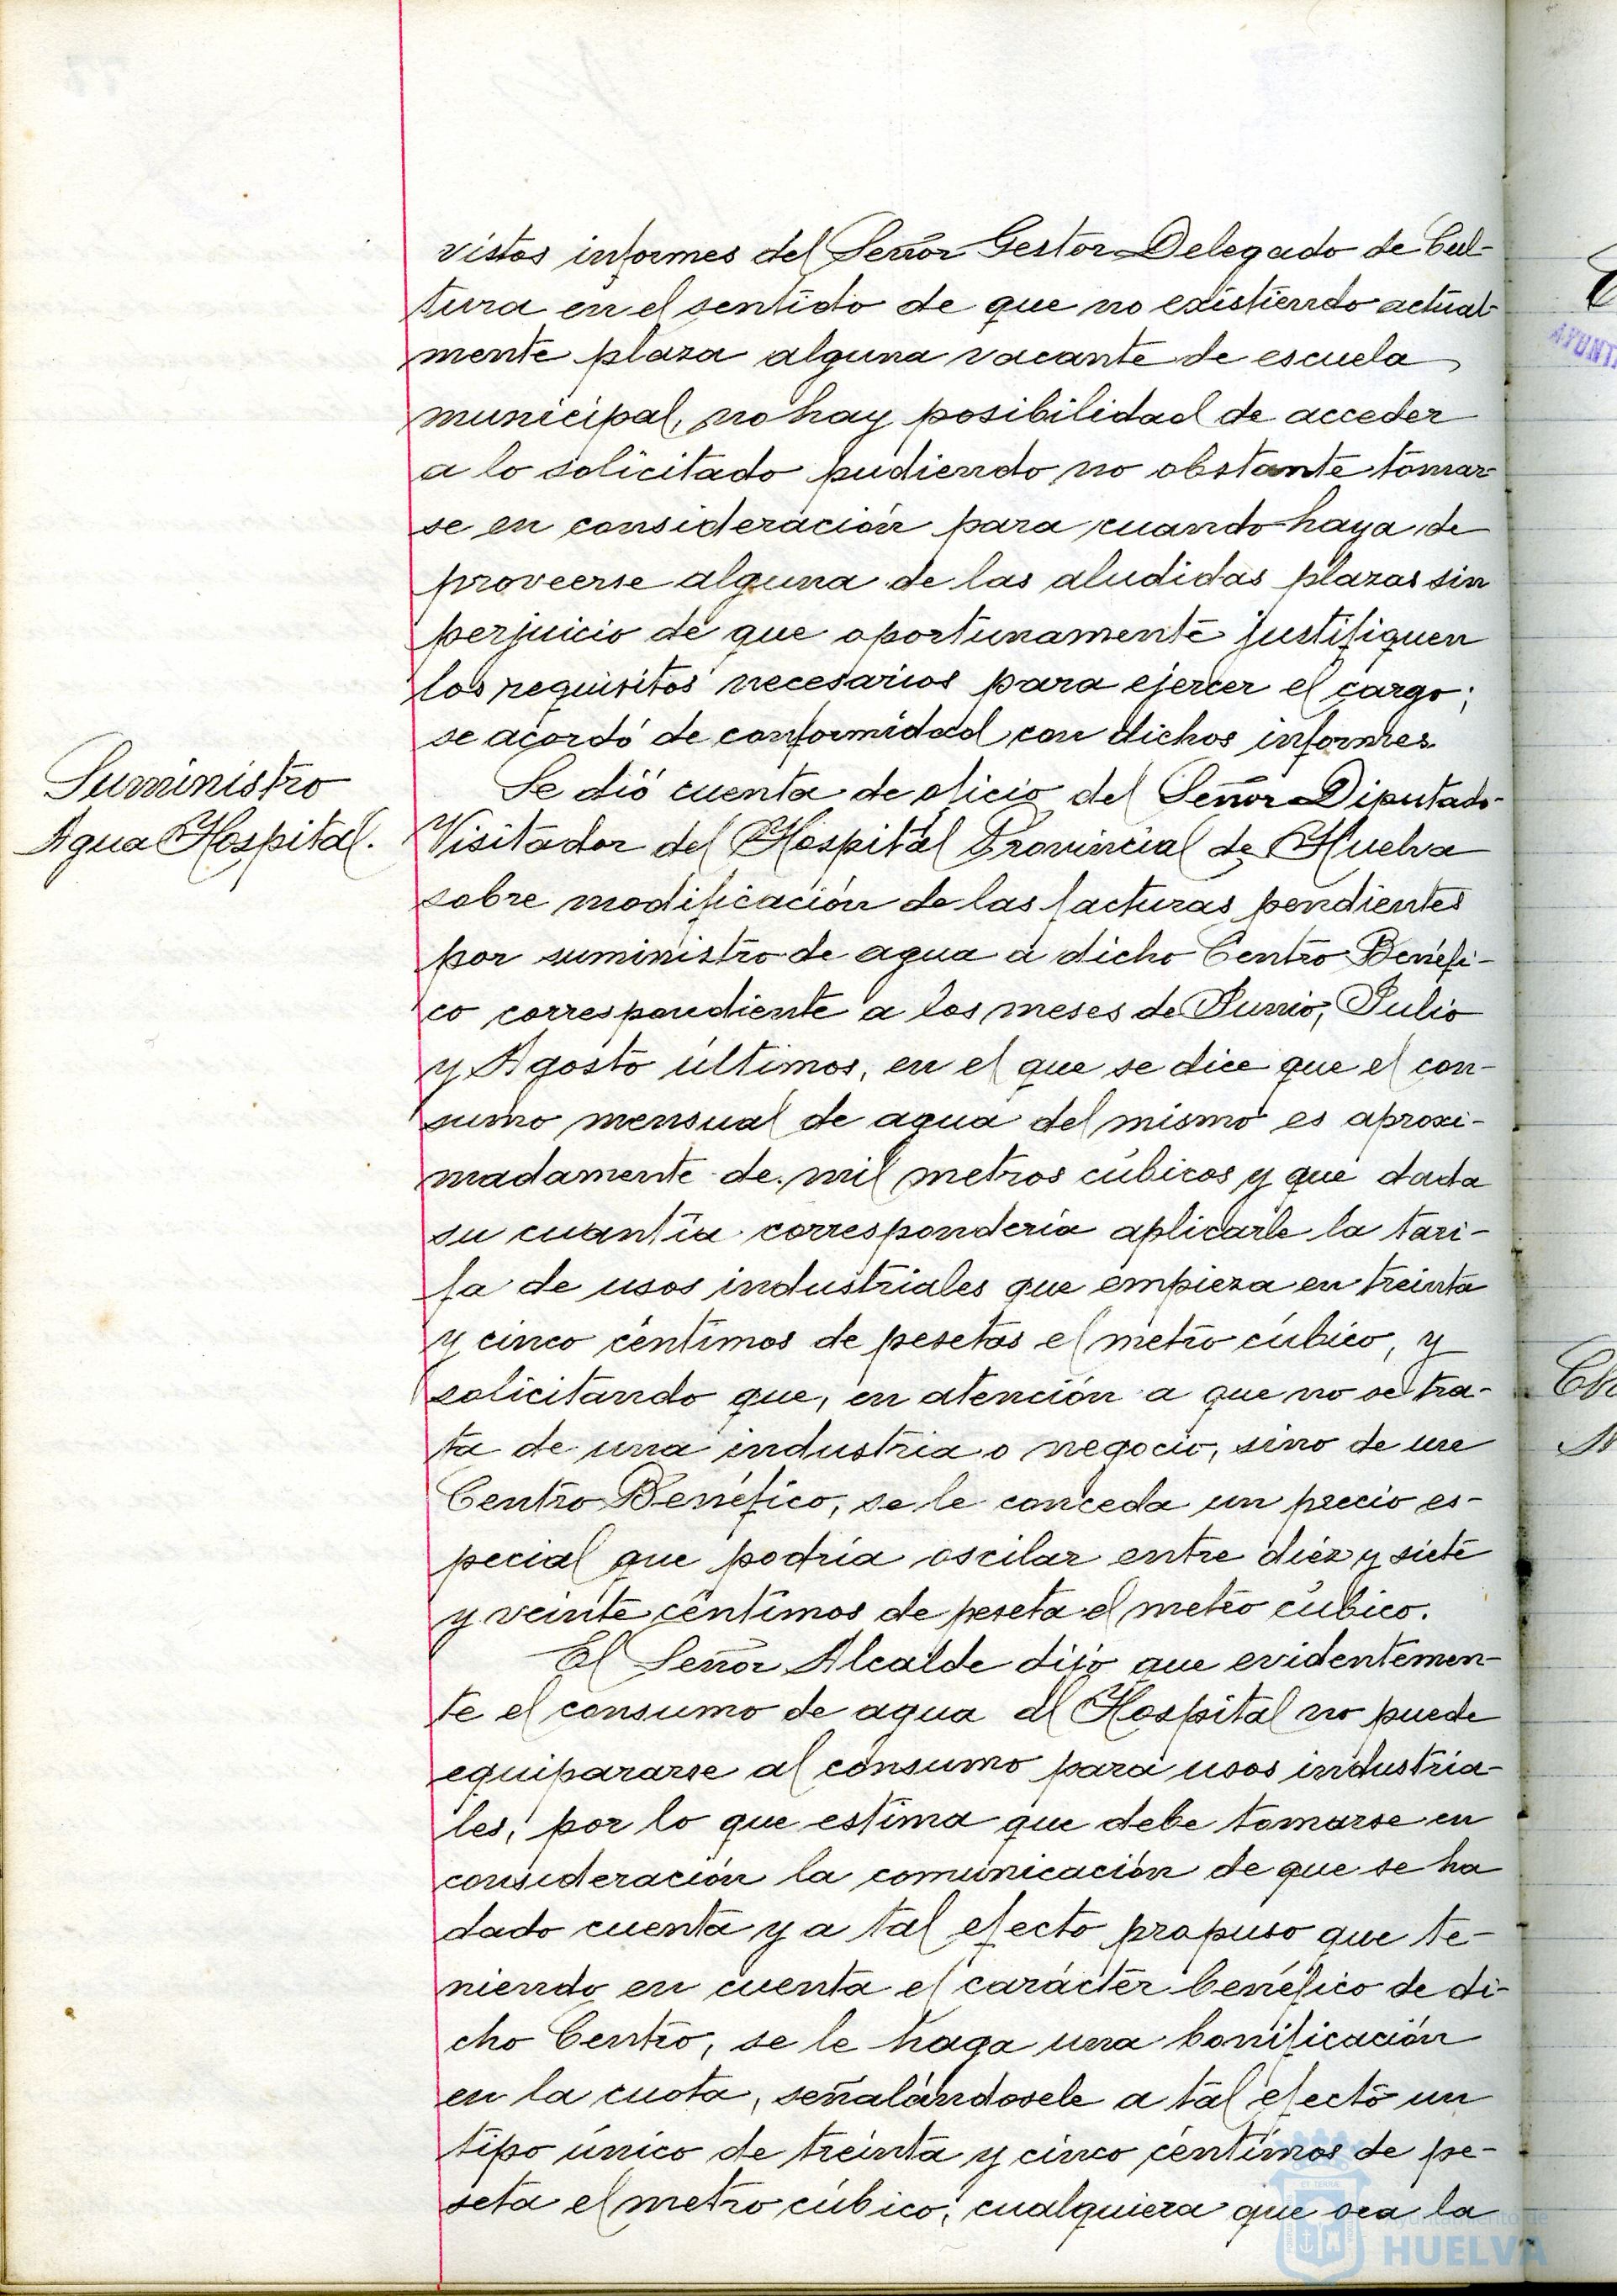 vistos informes del Señor Gestor Delegado de Cul-
tura en el sentido de que no existiendo actual-
mente plaza alguna vacante de escuela
municipal, no hay posibilidad de acceder
a lo solicitado pudiendo no obstante tomar-
se en consideración para cuando haya de
proveerse alguna de las aludidas plazas sin
perjuicio de que oportunamente justifiquen
los requisitos necesarios para ejercer el cargo;
se acordó de conformidad con dichos informes.
Suministro
Agua Hospital.
Se dió cuenta de oficio del Señor Diputado
Visitador del Hospital Provincial de Huelva
sobre modificación de las facturas pendientes
por suministro de agua a dicho Centro Benéfi-
co correspondiente a los meses de Junio, Julio
y Agosto últimos, en el que se dice que el con-
sumo mensual de agua del mismo es aproxi-
madamente de mil metros cúbicos y que dada
su cuantía correspondería aplicarle la tari-
fa de usos industriales que empieza en treinta
y cinco céntimos de pesetas el metro cúbico, y
solicitando que, en atención a que no se tra-
ta de una industria o negocio, sino de un
Centro Benéfico, se le conceda un precio es-
pecial que podría oscilar entre diez y siete
y veinte céntimos de peseta el metro cúbico.
El Señor Alcalde dijo que evidentemen-
te el consumo de agua del Hospital no puede
equipararse al consumo para usos industria-
les, por lo que estima que debe tomarse en
consideración la comunicación de que se ha
dado cuenta y a tal efecto propuso que te-
niendo en cuenta el carácter benéfico de di-
cho Centro, se le haga una bonificación
en la cuota, señalándosele a tal efecto un
tipo único de treinta y cinco céntimos de pe-
seta el metro cúbico, cualquiera que sea la
AYUNT
Ayuntamiento de
HUELVA